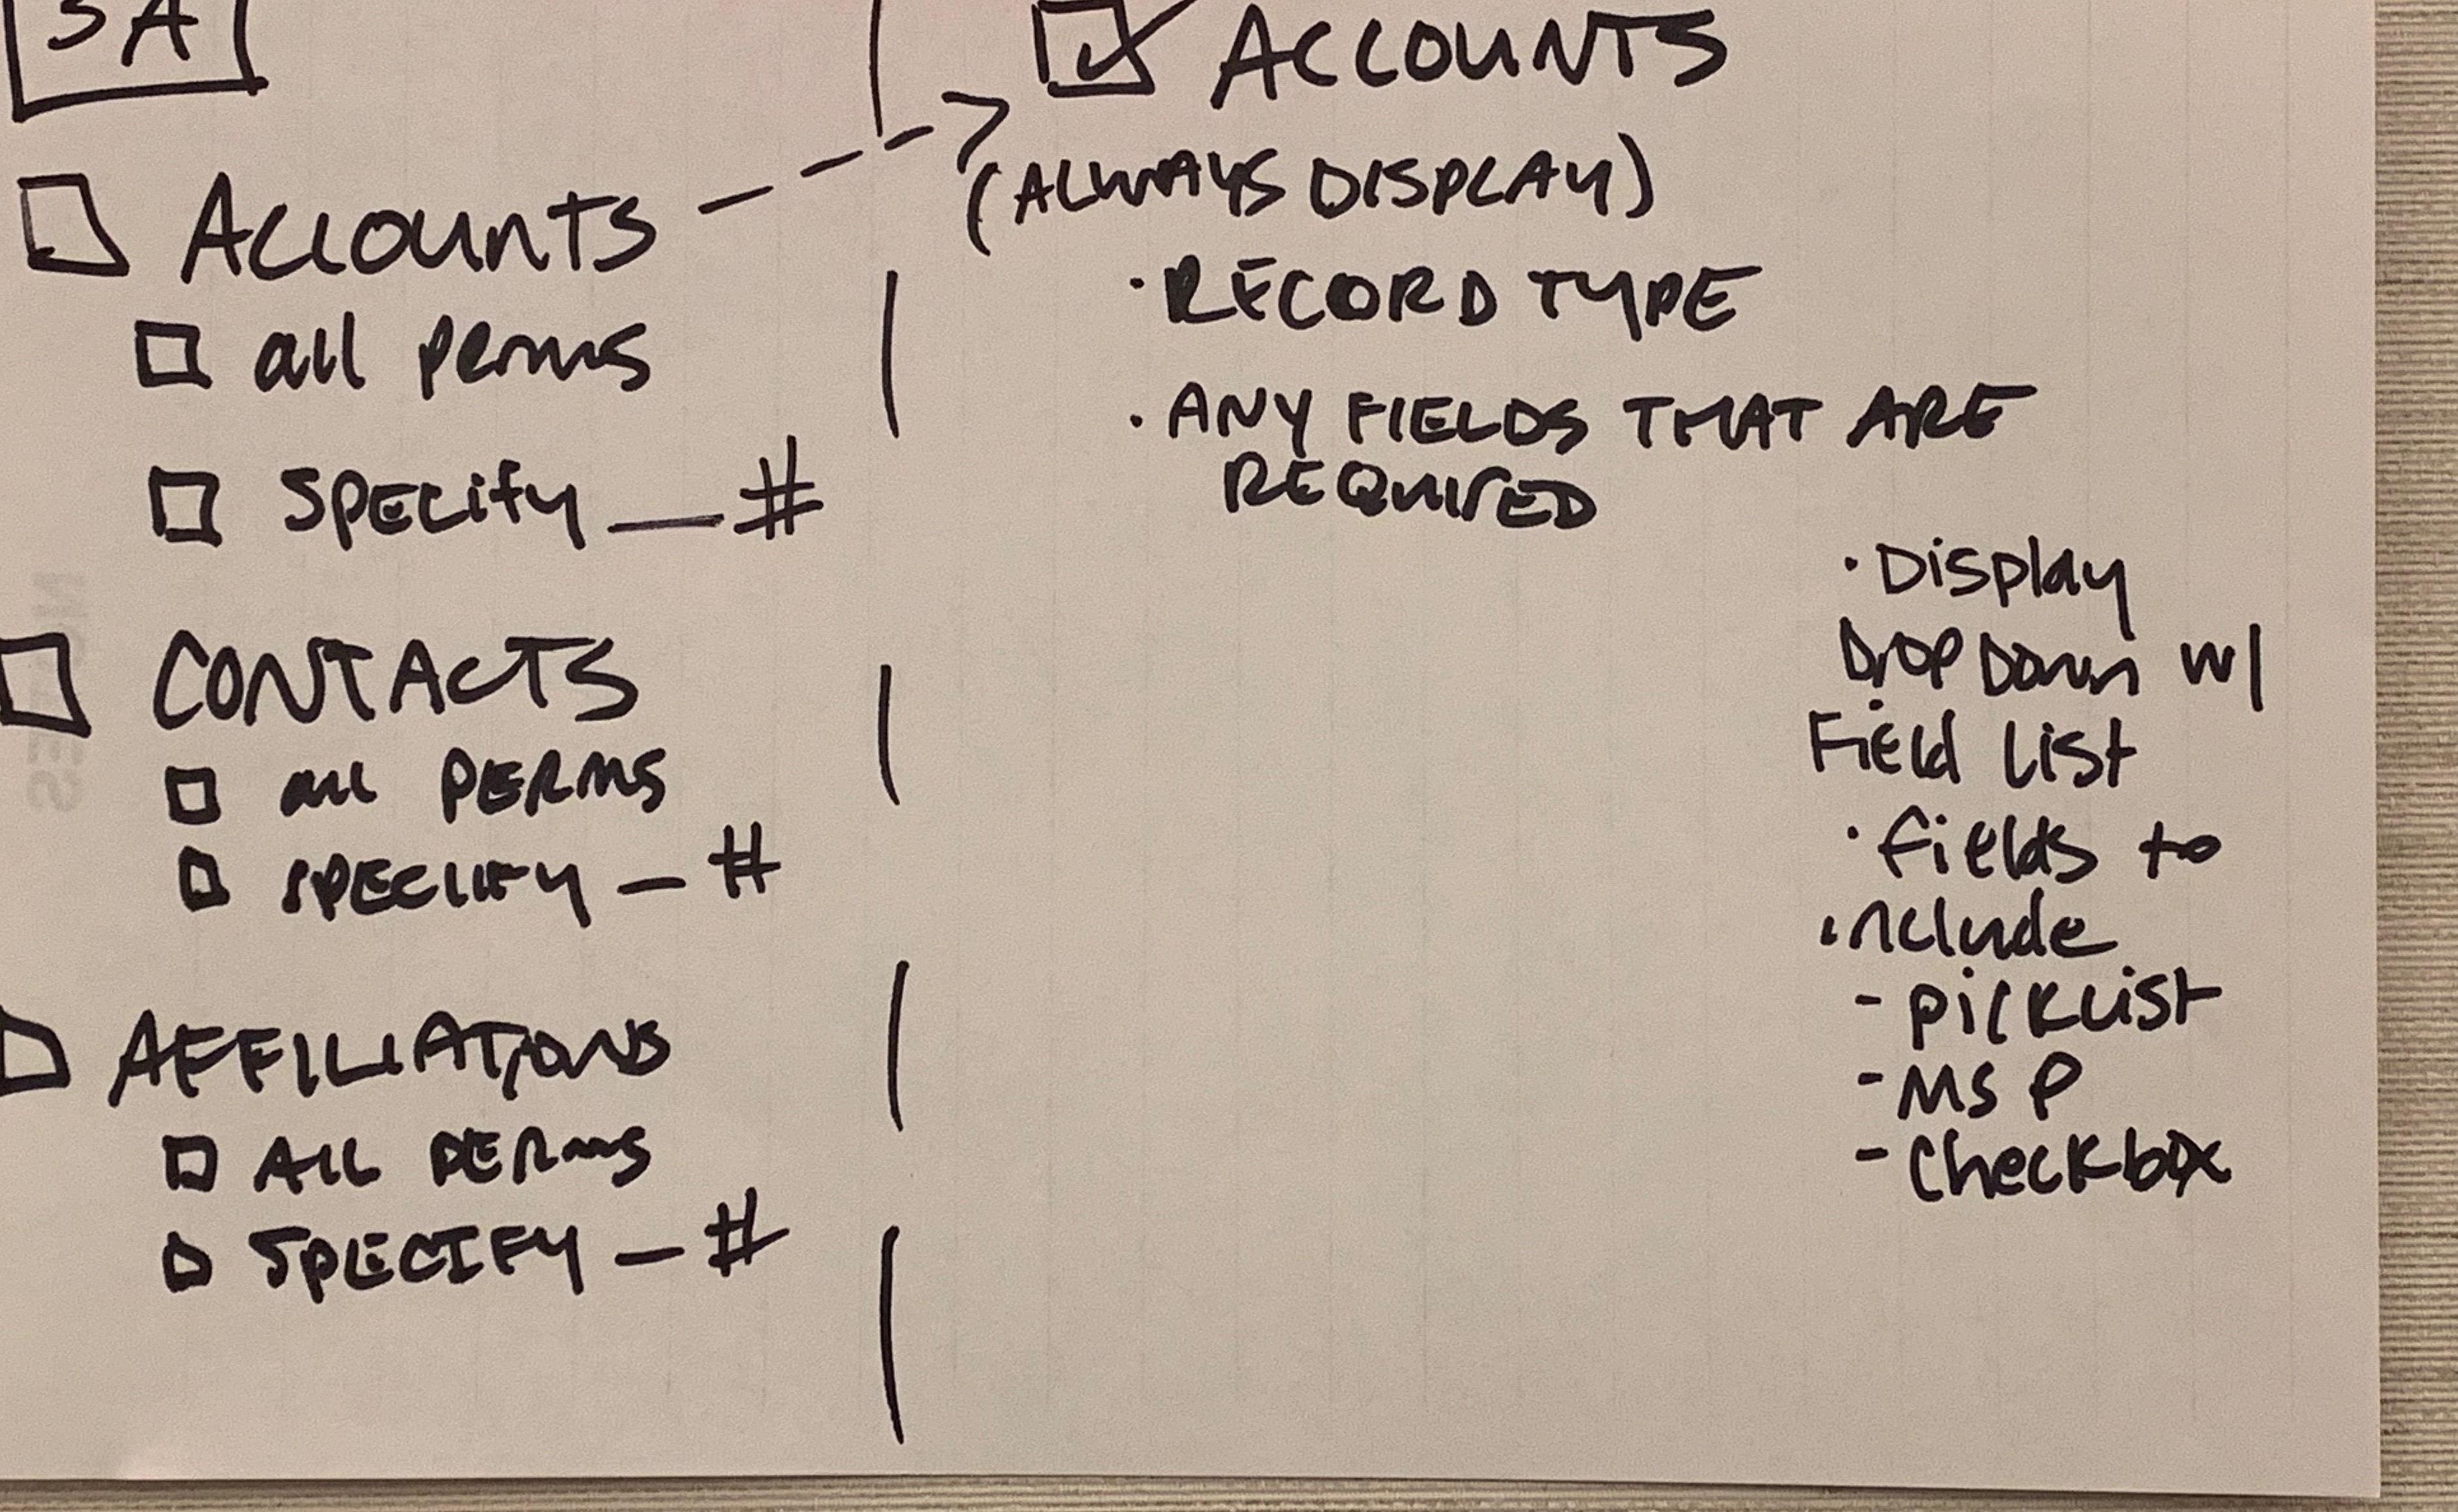 3A
ACCOUNTS
all perms
SPECify __ #
CONTACTS
all PERMS
SPECIFY - #
AFFILIATIONS
ALL PERMS
SPECIFY - #
ACCOUNTS
(ALWAYS DISPLAY)
· RECORD TYPE
· ANY FIELDS THAT ARE
REQUIRED
· Display
DropDown w/
Field list
· fields to
include
- picklist
- MSP
- Checkbox
NOTES